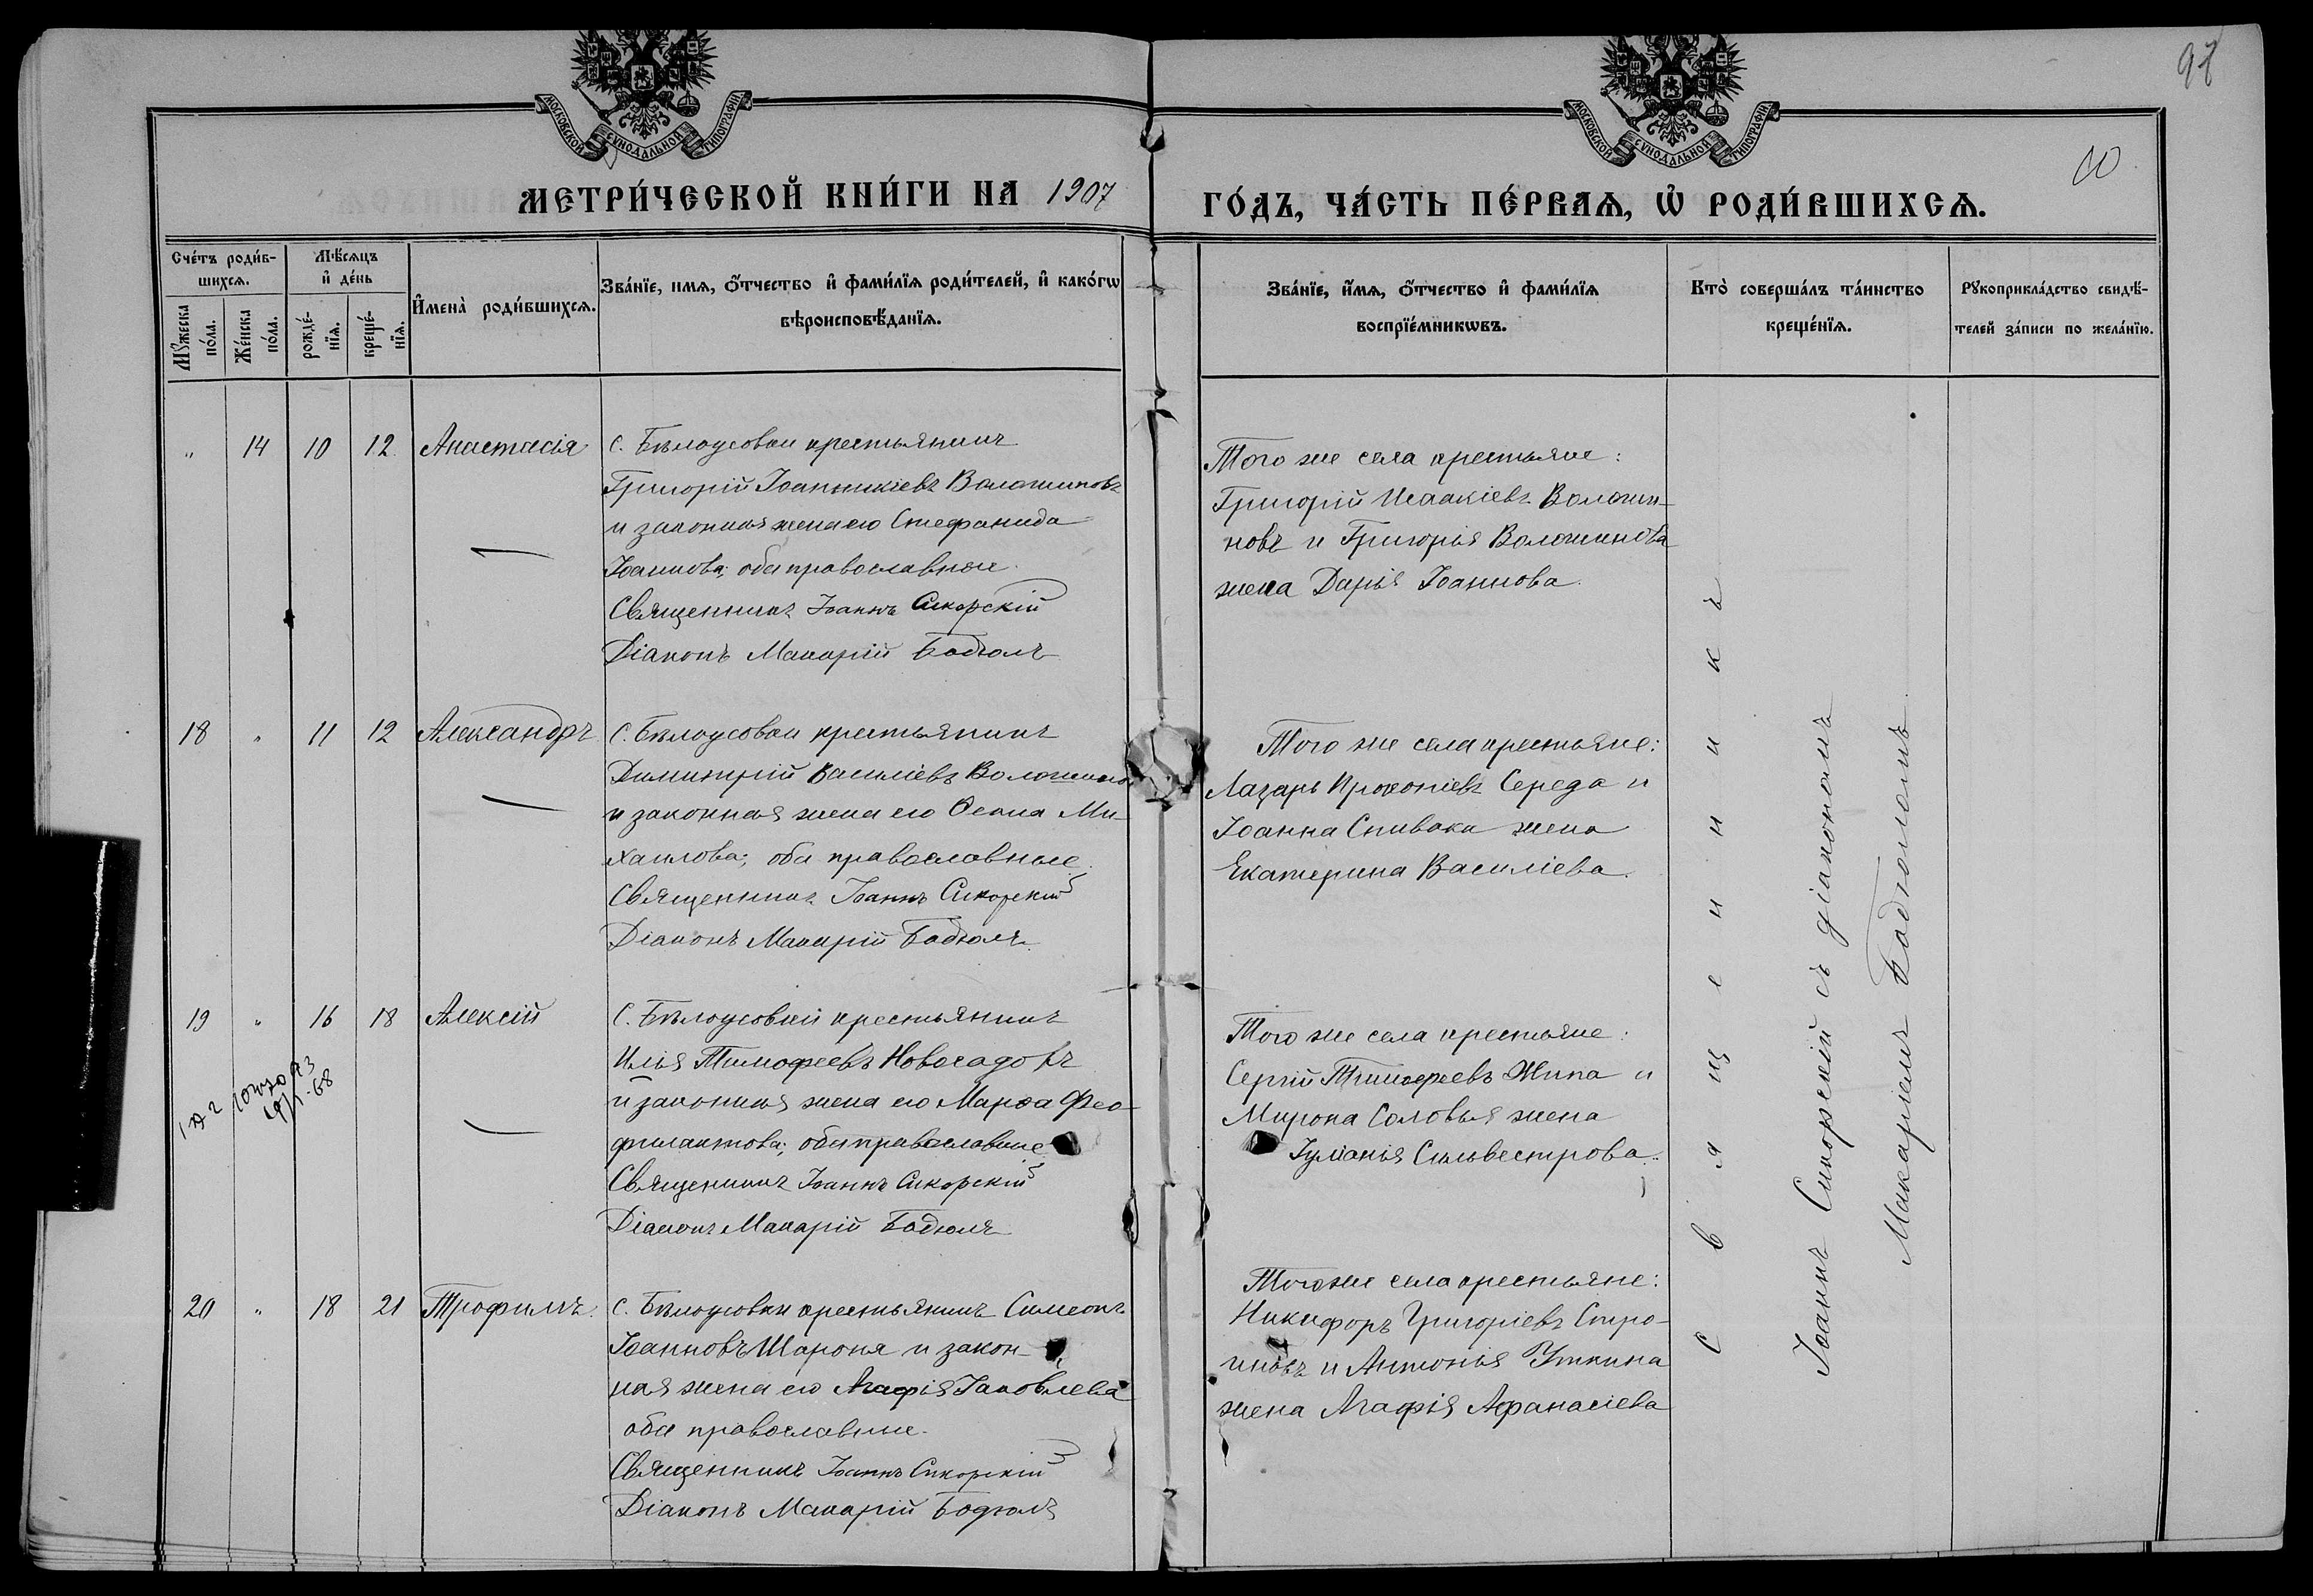 97
10
МОСКОВСКОЙ СѴНОДАЛЬНОЙ ТИПОГРАФІИ
МОСКОВСКОЙ СѴНОДАЛЬНОЙ ТИПОГРАФІИ
МЕТРИ́ЧЕСКОЙ КНИ́ГИ НА 1907 ГО́ДЪ, ЧА́СТЬ ПЕ́РВАѦ, Ѽ РОДИ́ВШИХСѦ.
Сче́тъ роди́в-
шихсѧ.
Мѣ́сяцъ
и҆ де́нь
Мꙋ́жеска
по́ла.
Же́нска
по́ла.
рожде́-
нїѧ.
креще́-
нїѧ.
И҆мена̀ роди́вшихсѧ.
Зва́нїе, имѧ, ѻ҆́тчество и҆ фами́лїѧ роди́телей, и҆ како́гѡ
вѣроисповѣ́данїѧ.
Зва́нїе, и҆́мѧ, ѻ҆́тчество и҆ фами́лїѧ
воспрїе́мникѡвъ.
Кто̀ соверша́лъ та́инство
креще́нїѧ.
Рꙋкоприкла́дство свидѣ́-
телей за́писи по жела́нїю.
" 14 10 12 Анастасія
С. Бѣлоусовки крестьянинъ
Григорій Іоанникіевъ Волошиновъ
и законная жена его Стефанида
Іоаннова; оба православные.
Священникъ Іоаннъ Сикорскій
Діаконъ Макарій Бодюлъ
Того же села крестьяне:
Григорій Исаакіевъ Волоши-
новъ и Григорія Волошинова
жена Дарія Іоаннова.
18 " 11 12 Александръ
С. Бѣлоусовки крестьянинъ
Димитрій Василіевъ Волошиновъ
и законная жена его Ѳекла Ми-
хаилова; оба православные.
Священникъ Іоаннъ Сикорскій
Діаконъ Макарій Бодюлъ.
Того же села крестьяне:
Лазарь Прокопіевъ Середа и
Іоанна Спивака жена
Екатерина Василіева.
19 " 16 18 Алексій
С. Бѣлоусовки крестьянинъ
Илія Тимофеевъ Новосадовъ
и законная жена его Марѳа Фео-
филактова; оба православные
Священникъ Іоаннъ Сикорскій
Діаконъ Макарій Бодюлъ
Того же села крестьяне:
Сергій Тимофеевъ Жипа и
Мирона Соловья жена
Іуліанія Сильвестрова.
20 " 18 21 Трофимъ.
С. Бѣлоусовки крестьянинъ Симеонъ
Іоанновъ Шароня и закон-
ная жена его Агафія Іаковлева
оба православные.
Священникъ Іоаннъ Сикорскій
Діаконъ Макарій Бодюлъ
Того же села крестьяне:
Никифоръ Григоріевъ Стро-
иновъ и Антонія Уткина
жена Агафія Афанасіева
Священникъ
Іоаннъ Сикорскій съ діакономъ
Макаріемъ Бодюломъ.